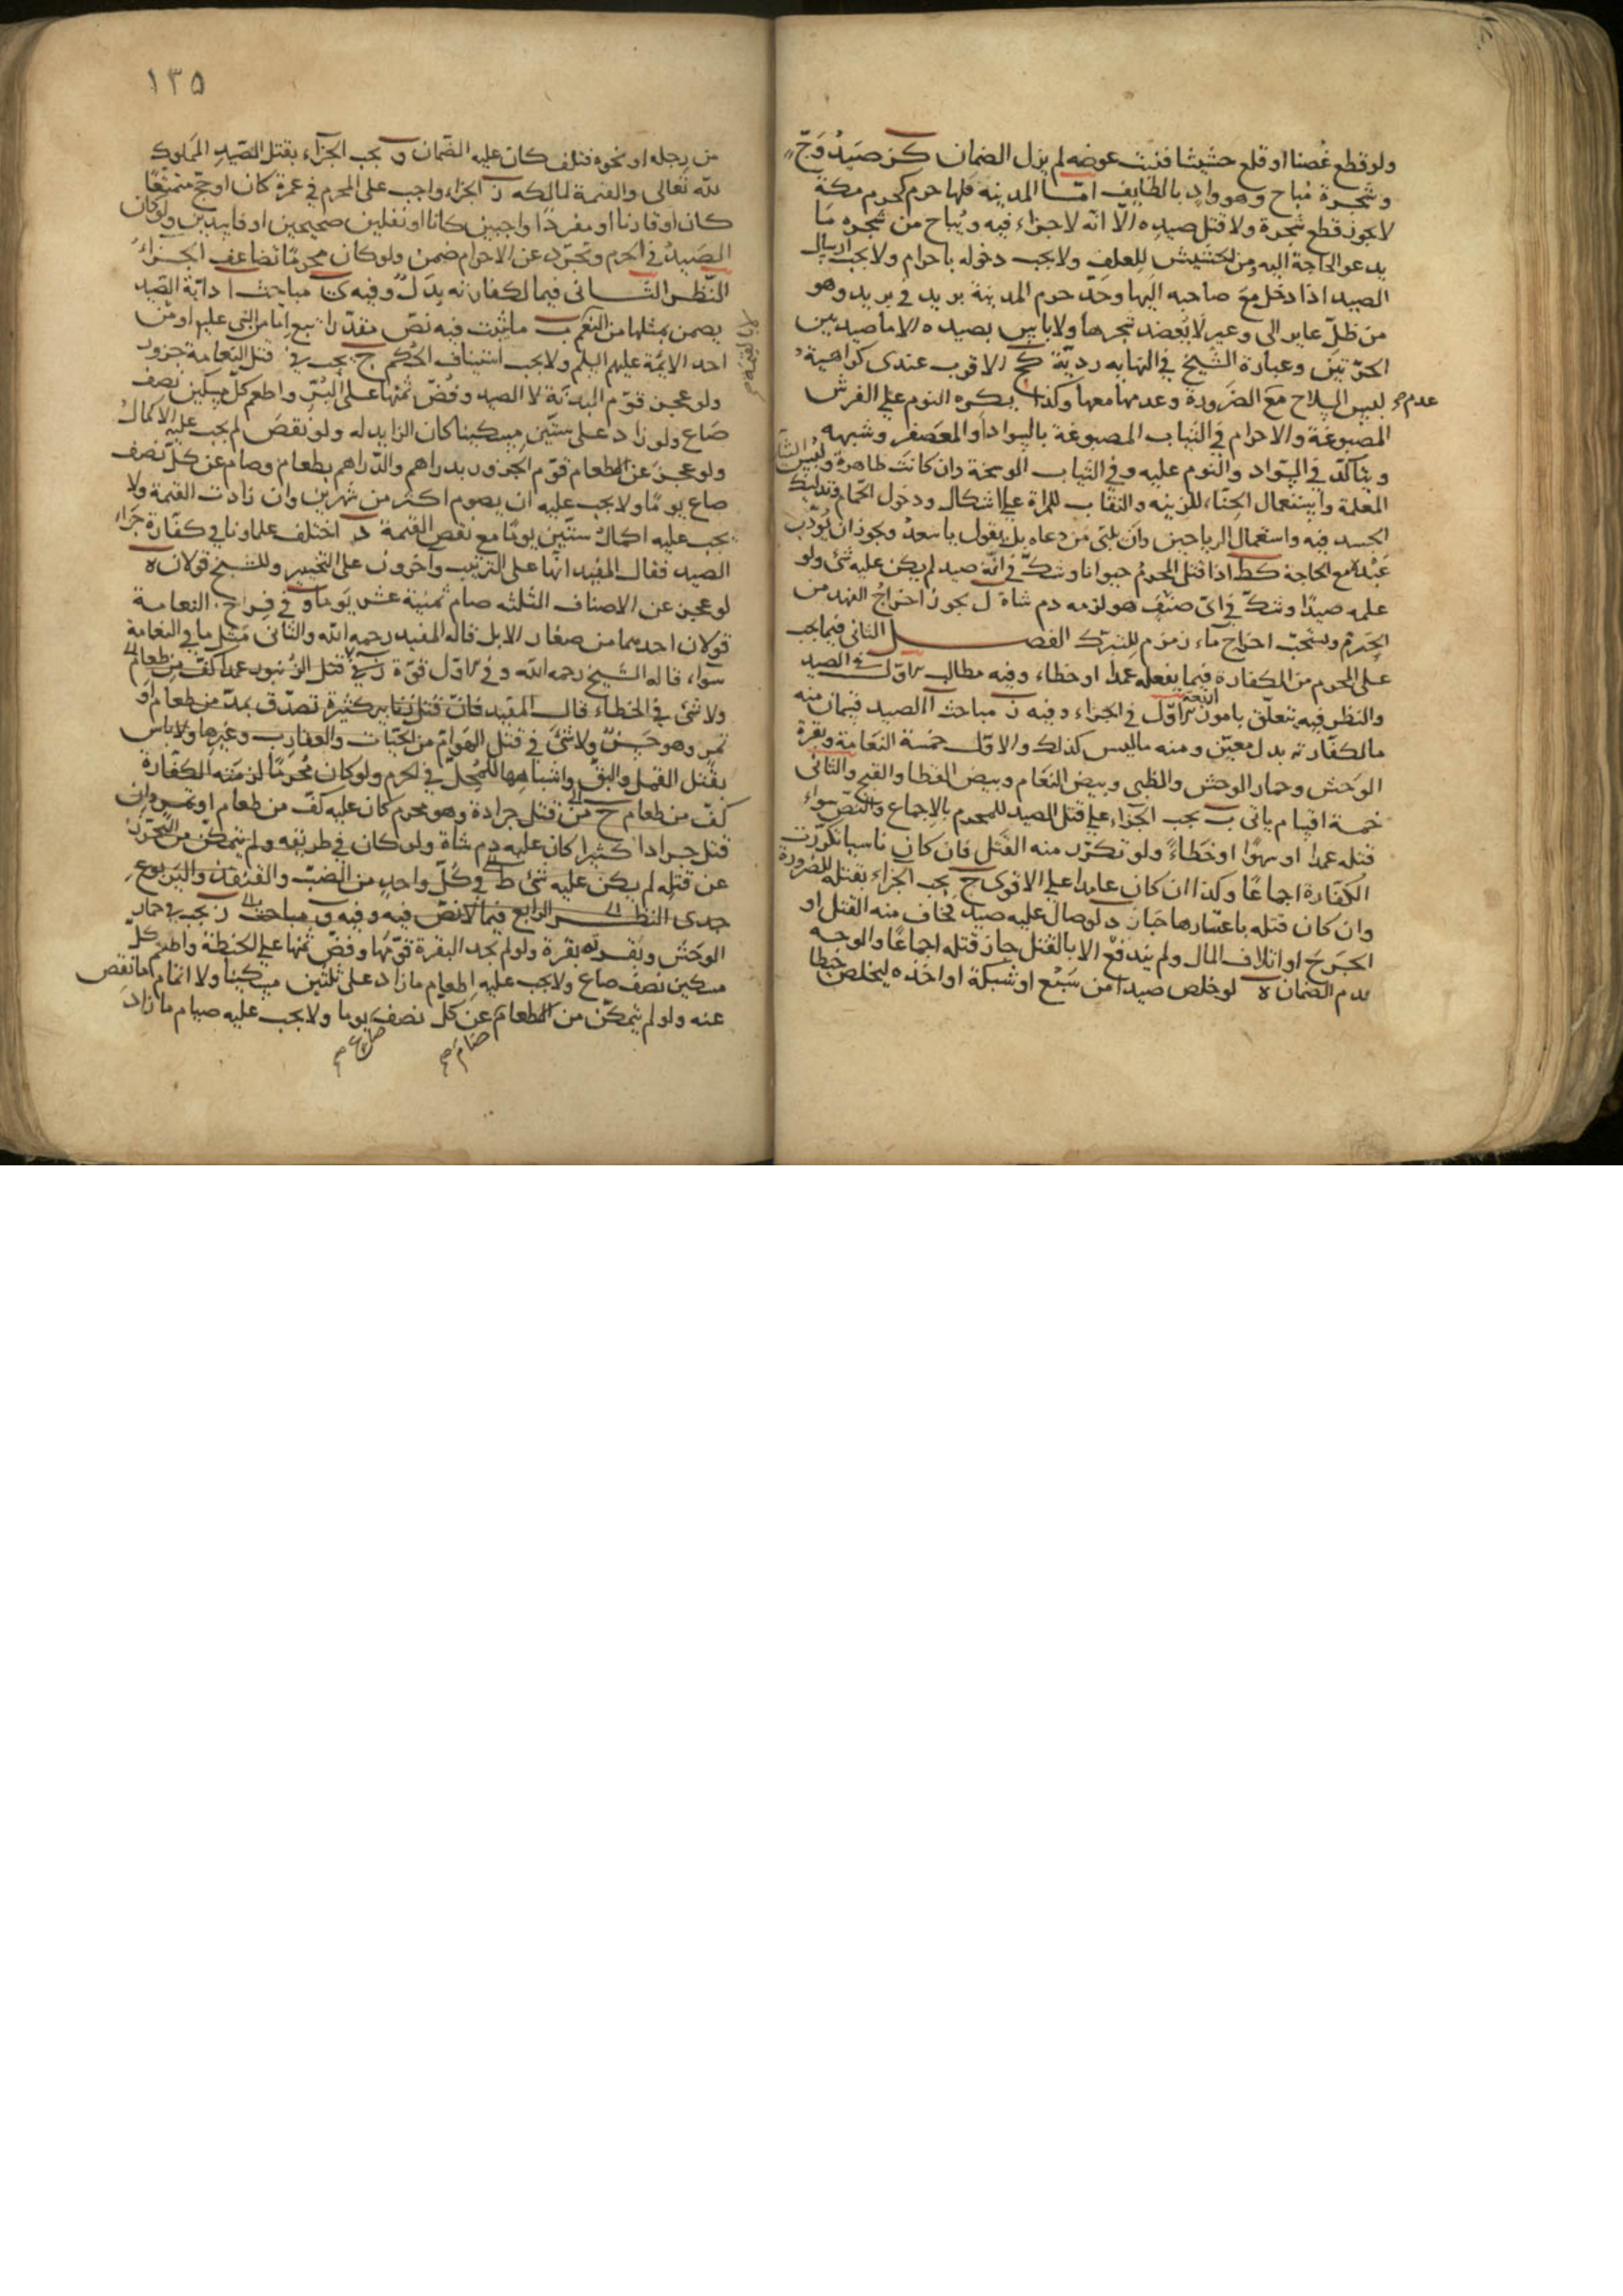 ولو قطع غصنا او قلع حشيشا فنبت عوضه لم يزل الضمان كز صيد وج
وشجرة مباح وهو واد بالطايف امّا المدينه فلها حرم كحرم مكة
لا يجوز قطع شجرة ولا قتل صيده الّا انّه لا جزاء فيه ويباح من شجره ما
يدعو الحاجة اليه ومن الحشيش للعلف ولا يجب دخوله باحرام ولا يجب ارسال
الصيد اذا دخل مع صاحبه اليها وحدّ حرم المدينة بريد في بريد وهو
من ظلّ عاير الى وعير لا يعضد شجرها ولا باس بصيده الا ما صيد بين
الحرّتين وعبارة الشيخ في النهايه رديّة كح الاقرب عندى كراهية
عدم لبس السلاح مع الضرورة وعدمها معها وكذا يكره النوم على الفرش
المصبوغة والاحرام في الثياب المصبوغة بالسواد او المعصفر وشبهه
ويتاكّد في السّواد والنوم عليه وفي الثياب الوسخة وان كانت طاهرة ولبس الثياب
المعلمة واستعمال الحنّاء للزينه والنقاب للمراة على اشكال ودخول الحمّام وتدليك
الجسد فيه واستعمال الرياحين وان يلبّى من دعاه بل يقول يا سعد ويجوز ان يؤدّب
عبده مع الحاجة كط اذا قتل المحرم حيوانا وشكّ في انّه صيد لم يكن عليه شئ ولو
علمه صيدا وشكّ في اىّ صنف هو لزمه دم شاة ل يجوز اخراج الفهد من
الحرم ويستحبّ اخراج ماء زمزم للتبرّك الفصل الثانى فيما يجب
على المحرم من الكفارة فيما يفعله عمدا او خطاء وفيه مطالب الاوّل في الصيد
والنظر فيه يتعلّق بامور اربعة الاوّل في الجزاء وفيه مباحث ا الصيد قسمان منه
ما لكفّارته بدل معيّن ومنه ما ليس كذلك والاوّل خمسة النعامة وبقرة
الوحش وحمار الوحش والظبى وبيض النعام وبيض القطا والقبج والثانى
خمسة اقسام ياتى ب يجب الجزاء على قتل الصيد للمحرم بالاجماع والنصّ سواء
قتله عمدا او سهوا او خطاءً ولو تكرّر منه القتل فان كان ناسيا تكرّرت
الكفّارة اجماعًا وكذا ان كان عامدا على الاقوى ج يجب الجزاء بقتله للضرورة
وان كان قتله باعتبارها جايز د لو صال عليه صيد فخاف منه القتل او
الجرح او اتلاف المال ولم يندفع الا بالقتل جاز قتله اجماعًا والوجه
عدم الضمان ه لو خلص صيدا من سبع او شبكة او اخذه ليخلص خيطا
١٣٥
من رجله او نحوه فتلف كان عليه الضمان و يجب الجزاء بقتل الصّيد المملوك
للّه تعالى والقيمة لمالكه ز الجزاء واجب على المحرم في عمرة كان او حجّ متمتّعًا
كان او قارنا او مفردًا واجبين كانا او نفلين صحيحين او فاسدين ولو كان
الصيد في الحرم وتجرّد عن الاحرام ضمن ولو كان محرمًا تضاعف الجزاء
النّظر الثانى فيما لكفارته بدل وفيه مباحث ا دابّة الصّيد
يضمن بمثلها من النعم ب ما يثبت فيه نصّ مقدّر اتبع امّا من النبى عليه او من
احد الايمّة عليهم السلم ولا يجب استيناف الحكم ج يجب في قتل النّعامة جزور
لا القيمة
ولو عجز قوّم البدنة لا الصيد وفضّ ثمنها على البُرّ واطعم كلّ مسكين نصف
صاع ولو زاد على ستّين مسكينا كان الزايد له ولو نقص لم يجب عليه الاكمال
ولو عجز عن الطعام قوّم الجزور بدراهم والدّراهم بطعام وصام عن كلّ نصف
صاع يومًا ولا يجب عليه ان يصوم اكثر من شهرين وان زادت القيمة ولا
يجب عليه اكمال ستّين يومًا مع نقص القيمة د اختلف علماونا في كفّارة جزاء
الصيد فقال المفيد انّها على الترتيب واخرون على التخيير وللشيخ قولان ه
لو عجز عن الاصناف الثلثه صام ثمنية عشر يوما و في فراخ النعامة
قولان احدهما من صغار الابل قاله المفيد رحمه اللّه والثانى مثل ما في النعامة
سواء قاله الشيخ رحمه اللّه وفي الاوّل قوّة ز في قتل الزنبور عمدا كفّ من طعام
ولا شئ في الخطاء قال المفيد فان قتل زنابير كثيرة تصدّق بمدّ من طعام او
تمر وهو حسن ولا شئ في قتل الهوامّ من الحيّات والعقارب وغيرها ولا باس
بقتل القمل والبقّ واشباهها للمحلّ في الحرم ولو كان محرمًا لزمته الكفّارة
كفّ من طعام ح من قتل جرادة وهو محرم كان عليه كفّ من طعام او تمرة وان
قتل جرادا كثيرا كان عليه دم شاة ولو كان في طريقه ولم يتمكّن من التحرّز
عن قتله لم يكن عليه شئ ط في كلّ واحد من الضبّ والقنفذ واليربوع
جدى النظر الرابع فيما لا نصّ فيه وفيه مباحث يجب في حمار
الوحش وبقرته بقرة ولو لم يجد البقرة قوّمها وفضّ ثمنها على الحنطة واطعم كلّ
مسكين نصف صاع ولا يجب عليه اطعام ما زاد على ثلثين مسكينا ولا اتمام ما نقص
عنه ولو لم يتمكّن من الطعام عن كلّ نصف يوما ولا يجب عليه صيام ما زاد
صام صاع